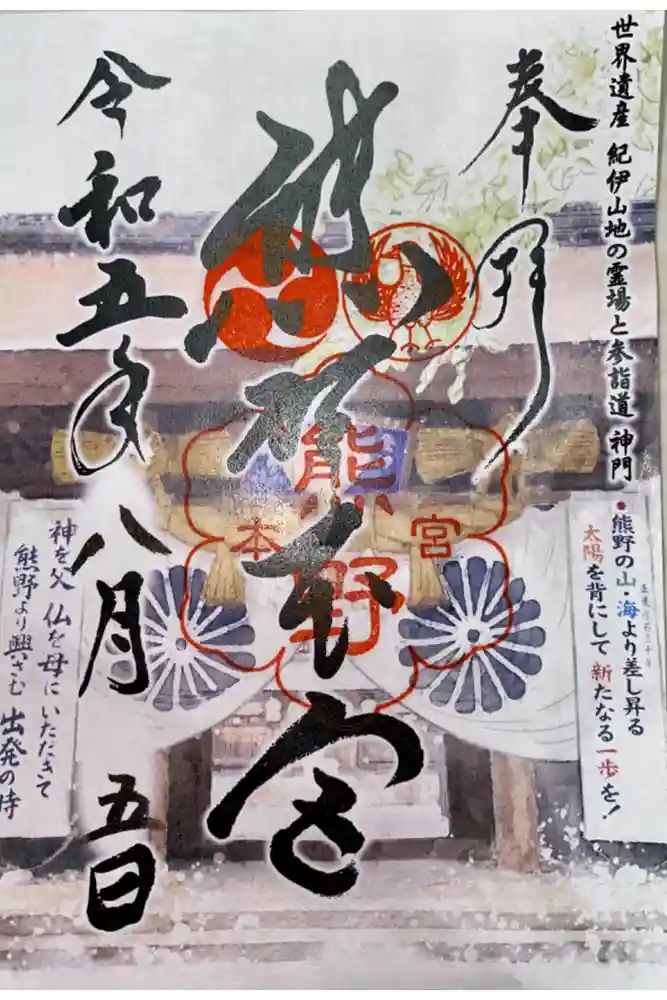 世界遺産 紀伊山地の霊場と参詣道 神門
奉拝
熊野本宮
令和五年八月五日
熊野
本宮
熊野の山・海より差し昇る
太陽を背にして新たなる一歩を!
神を父 仏を母に いただきて
熊野より興さむ 出発の時